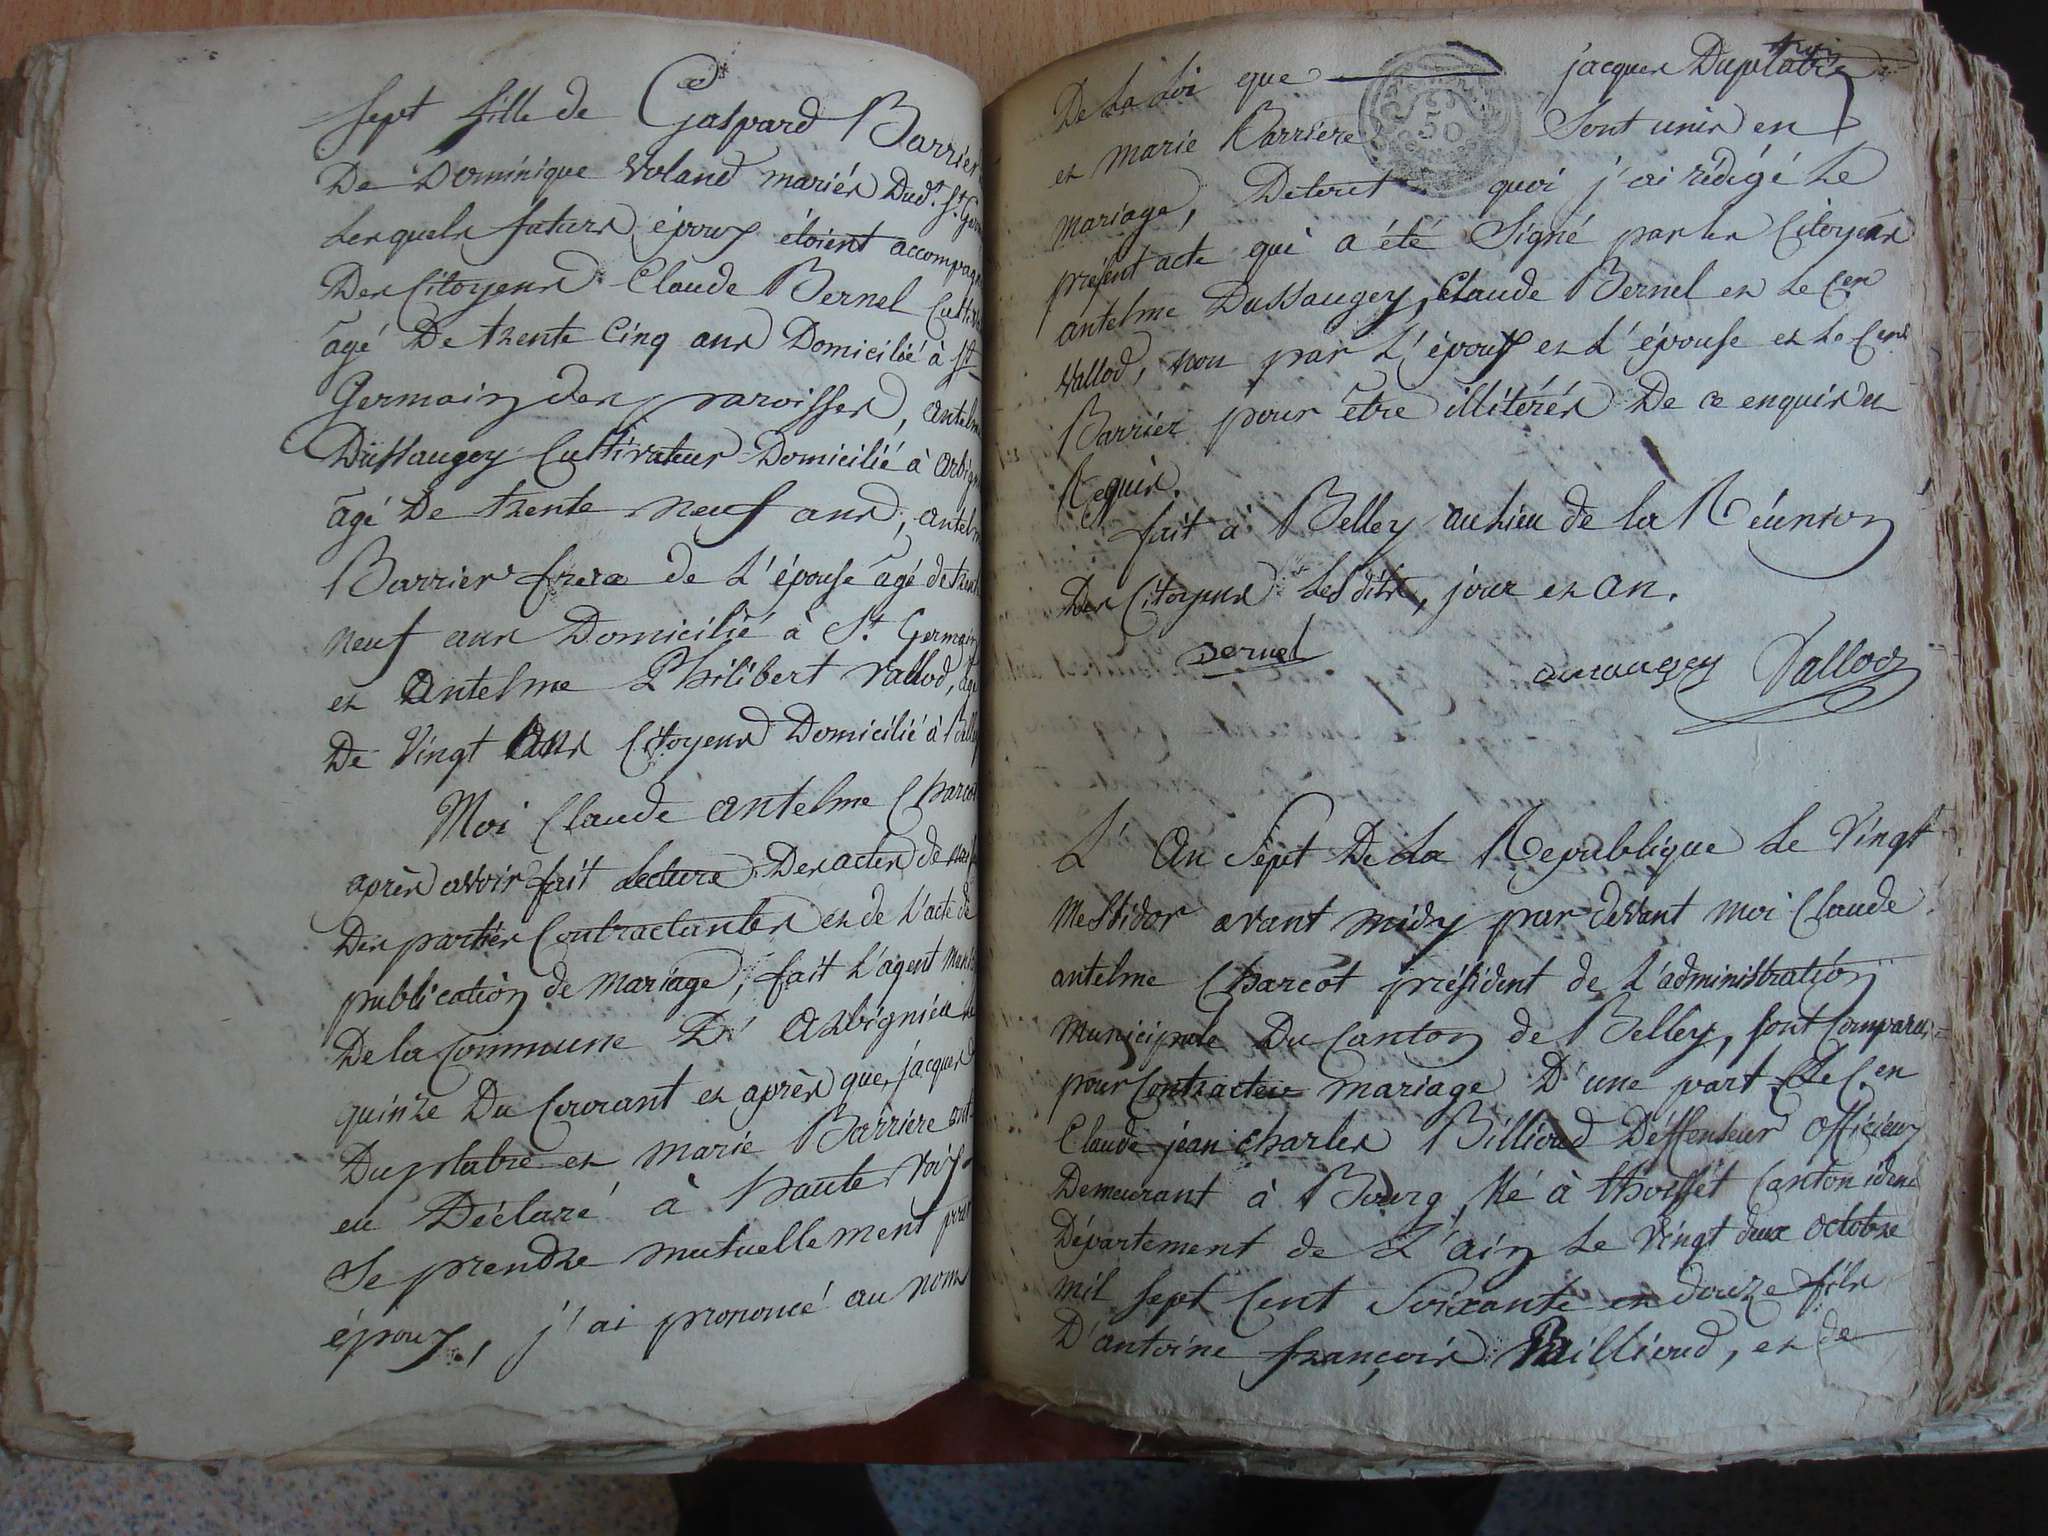 sept fille de Gaspard Barrier
De Dominique Voland mariés Dud. St Germ
Lesquels futurs époux étoient accompagn
Des Citoyens Claude Bernel Cultiv
âgé De trente Cinq ans Domicilié à St
Germain des paroisses, antelm
Dussaugey Cultivateur Domicilié à arbign
âgé De trente neuf ans, antelm
Barrier frere de L'épouse âgé de trent
neuf ans Domicilié à St. Germain
et Antelme Philibert Vallod, agé
De Vingt ans Citoyens Domicilié à Belley
Moi Claude antelme Charcot
après avoir fait Lecture Des actes de nais
Des parties Contractantes et de L'acte de
publication de mariage, fait L'agent muni
De la Commune D'arbignieu le
quinze Du Courant et après que jacques
Duplatre et marie Barriere ont
eu Déclaré à haute voix
Se prendre mutuellement pour
époux, j'ai prononcé au nom
De La Loi que jacques Duplatre
et marie Barriere Sont unis en
50
mariage, De quoi j'ai rédigé Le
présent acte qui a été Signé par les Citoyens
antelme Dussaugey, Claude Bernel et Le Cen
Vallod, non par L'époux et L'épouse et Le Cen
Barrier pour être illiterés De ce enquis et
Requis.
fait à Belley au Lieu de la Réunion
Des Citoyens Lesdits, jour et an.
Bernel Dussaugey Vallod
L'An Sept De La Republique Le Vingt
Messidor avant midy par devant moi Claude
antelme Charcot président de L'administration
Municipale Du Canton de Belley, sont Comparu
pour Contracter mariage D'une part Le C.en
Claude jean charles Billioud Déffenseur Officieux
Demeurant à Bourg, Né à thoisset Canton idem
Département de L'ain Le Vingt deux octobre
mil sept Cent Soixante et douze fils
D'antoine françois Billioud, et de